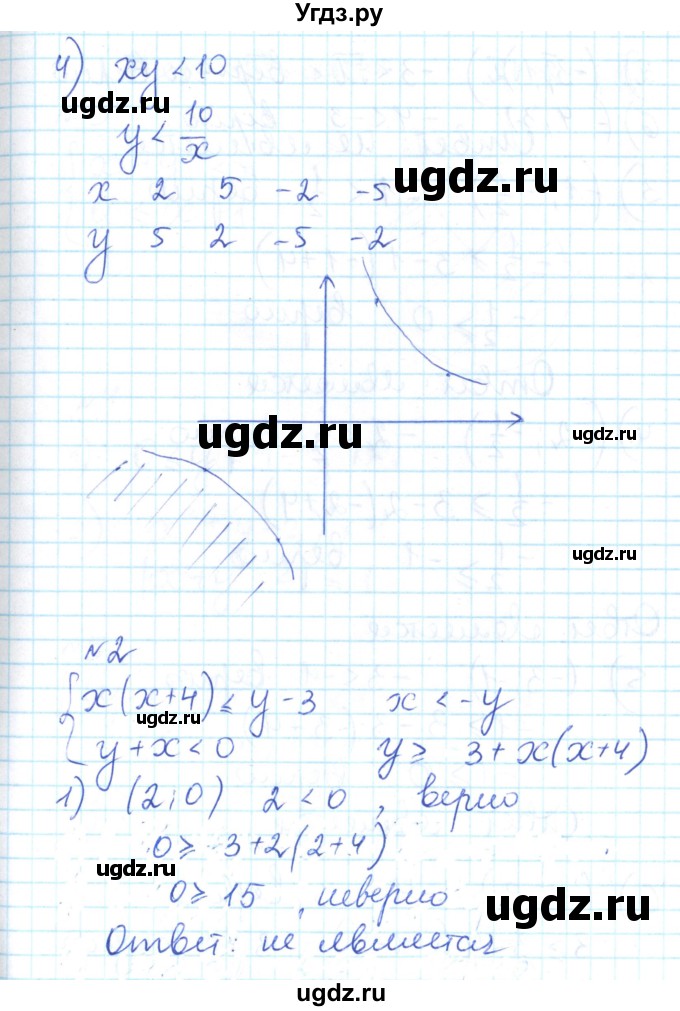 Угдз.ру
4) xy < 10
ugdz.ru
y < 10/x
ugdz.ru
x 2 5 -2 -5
y 5 2 -5 -2
ugdz.ru
ugdz.ru
ugdz.ru
ugdz.ru
№2
{ x(x+4) ≤ y-3    x < -y
ugdz.ru
y+x < 0    y ≥ 3+x(x+4)
1) (2;0) 2 < 0, верно
0 ≥ 3+2(2+4)
ugdz.ru
0 ≥ 15, неверно
ugdz.ru
Ответ: не является
ugdz.ru